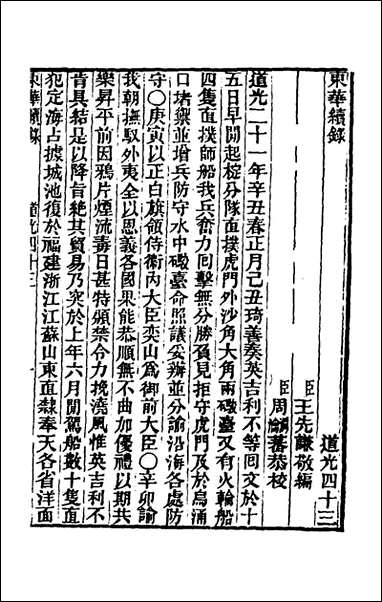 東華續錄
道光四十三
臣王先謙敬編
臣周潤蕃恭校
道光二十一年辛丑春正月己丑琦善奏英吉利不等囘文於十
五日早間起椗分隊直撲虎門外沙角大角兩礮臺又有火輪船
四隻直撲師船我兵奮力囘擊無分勝負見拒守虎門及於烏涌
口堵禦並增兵防守水中礮臺命照議妥辦並分諭沿海各處防
守〇庚寅以正白旗領侍衞內大臣奕山爲御前大臣〇辛卯諭
我朝撫馭外夷全以恩義各國果能恭順無不曲加優禮以期共
樂昇平前因鴉片煙流毒日甚特頒禁令力挽澆風惟英吉利不
肯具結是以降旨絕其貿易乃突於上年六月閒駕船數十隻直
犯定海占據城池復於福建浙江江蘇山東直隸奉天各省洋面
東華續錄
道光四十三
一